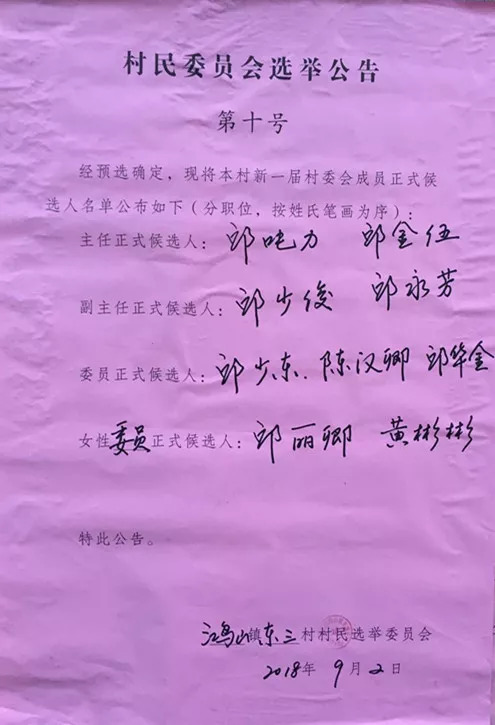 村民委员会选举公告
第十号
经预选确定，现将本村新一届村委会成员正式候
选人名单公布如下（分职位，按姓氏笔画为序）：
主任正式候选人：邱吨力 邱金伍
副主任正式候选人：邱少俊 邱永芳
委员正式候选人：邱少东、陈汉卿 邱华金
女性委员正式候选人：邱丽卿 黄彬彬
特此公告。
鸿山镇东三村村民选举委员会
2018年9月2日